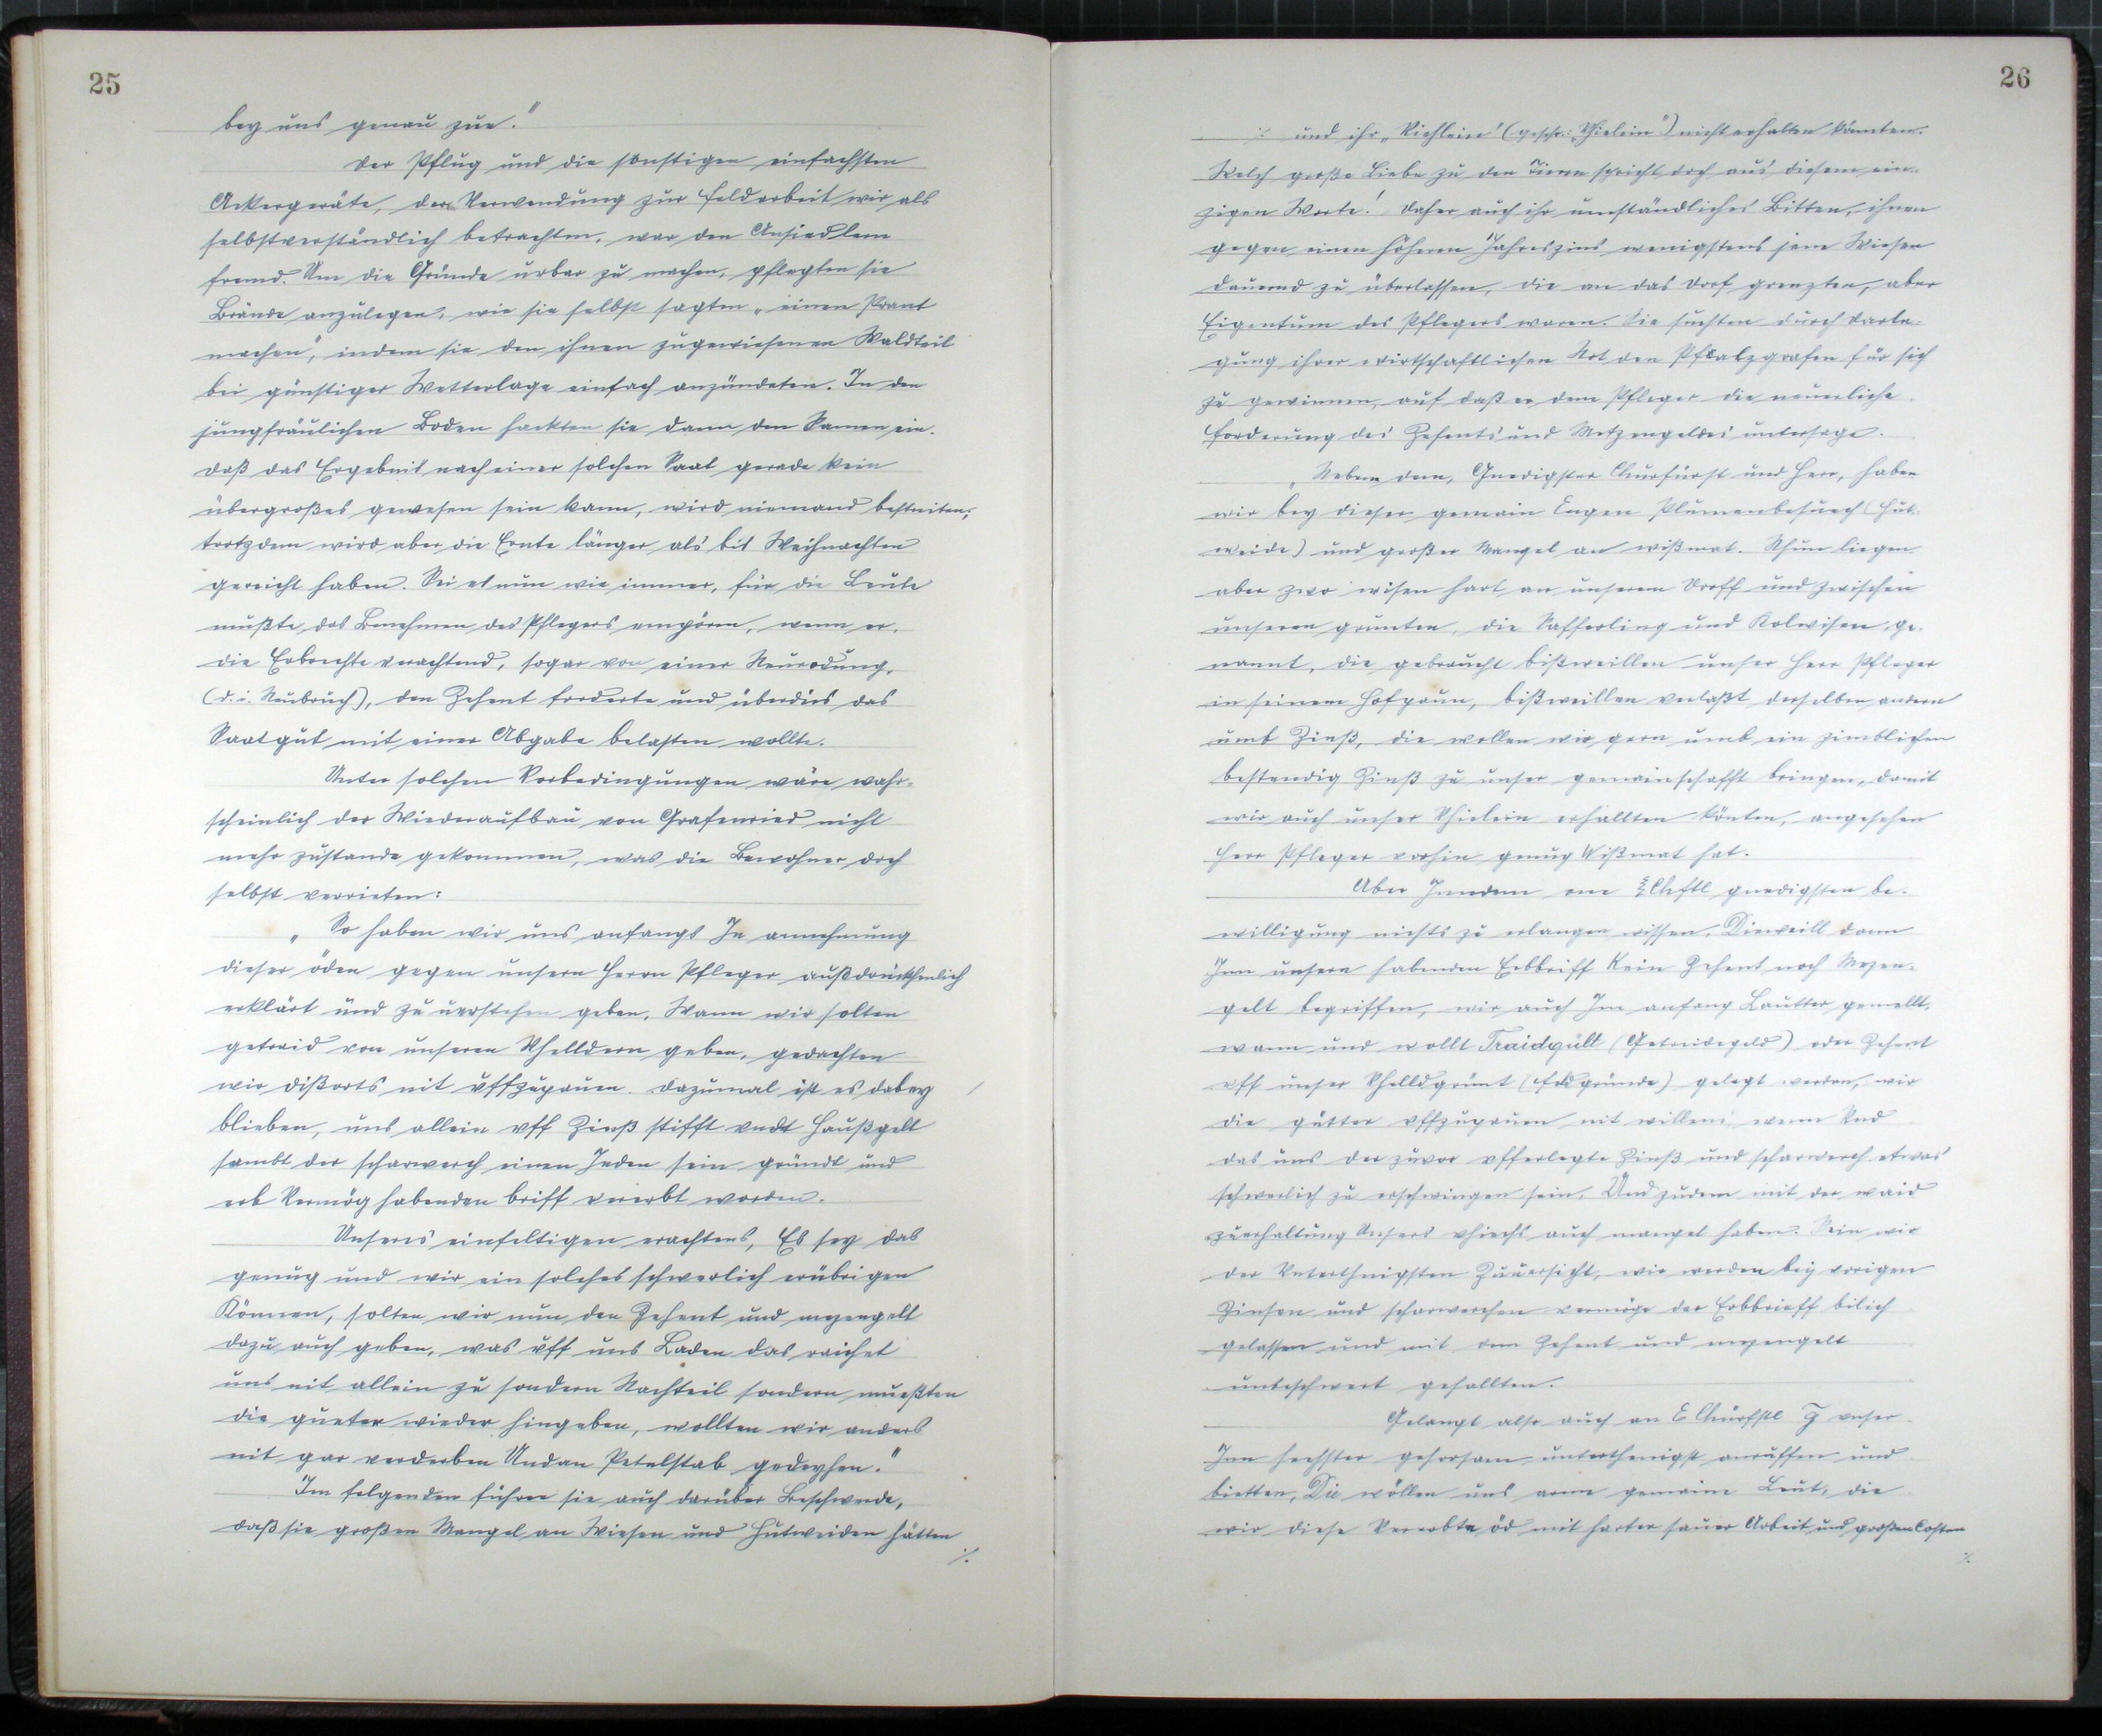 25
bey uns genau zue."
Der Pflug und die sonstigen einfachsten
Ackergeräte, deren Verwendung zur Feldarbeit wir als
selbstverständlich betrachten, war den Ansiedlern
fremd. Um die Gründe urbar zu machen, pflegten sie
Brände anzulegen, wie sie selbst sagten „einen Prant
machen", indem sie den ihnen zugewiesenen Waldteil
bei günstiger Wetterlage einfach anzündeten. In den
jungfräulichen Boden hackten sie dann den Samen ein.
Daß das Ergebnis nach einer solchen Saat gerade kein
übergroßes gewesen sein kann, wird niemand bestreiten;
trotzdem wird aber die Ernte länger als bis Weihnachten
gereicht haben. Sei es nun wie immer, für die Leute
mußte das Benehmen des Pflegers empören, wenn er,
die Erbrechte verachtend, sogar von einer Neurodung,
(d. i. Neubruch), den Zehent forderte und überdies das
Saatgut mit einer Abgabe belasten wollte.
Unter solchen Vorbedingungen wäre wahr-
scheinlich der Wiederaufbau von Grafenried nicht
mehr zustande gekommen, was die Bewohner doch
selbst verrieten:
„So haben wir uns anfangs In annehmung
dieser öden gegen unsern Herrn Pfleger außdrückhenlich
erklärt und zu uerstehen geben, Wann wir solten
getraid von unseren Vhelldern geben, gedachten
wir dißorts nit vffzupauen. Dazumal ist es dabey
blieben, uns allein vff Zinß stifft vndt Haußgelt
sambt der scharwerch einen Jeden sein gründt und
erb Vermög habenden briff vererbt worden.
Unseres einfeltigen erachtens, Es sey das
genug und wir ein solches schwerlich erübrigen
Können, solten wir nun den Zehent und mezengelt
dazu auch geben, was vff uns Laden das raichet
uns nit allein zu sondern Nachteil sondern mueßten
die gueter wieder hingeben, wollten wir anders
nit gar verderben Undan Petelstab gedeyhen."
Im folgenden führen sie auch darüber Beschwerde,
daß sie großen Mangel an Wiesen und Hutweiden hätten
./.
26
./. und ihr „Viehlein" (geschr.: „Vhielein") nicht erhalten könnten.
Welch große Liebe zu den Tieren spricht doch aus diesem ein-
zigen Worte! Daher auch ihr umständliches Bitten, ihnen
gegen einen höheren Jahreszins wenigstens jene Wiesen
dauernd zu überlassen, die an das Dorf grenzten, aber
Eigentum des Pflegers waren. Sie suchten durch Darle-
gung ihrer wirtschaftlichen Not den Pfalzgrafen für sich
zu gewinnen, auf daß er dem Pfleger die neuerliche
Forderung des Zehents und Metzengeldes untersage.
„Neben dem, Gnedigster Churfürst und Herr, haben
wir bey dieser gemain Engen Pluemenbesuech (Hut-
weide) und großer Mangel an wißmat. Nhun liegen
aber zwo wisen hart an unserem Dorff und zwischen
unseren grunten, die Safferling und Kolwisen, ge-
nannt, die gebraucht bißweillen unser Herr Pfleger
in seinem Hofpaun, bißweillen verlaßt derselben andern
umb Zinß, die wollen wir gern umb ein zimblichen
bestendig Zinß zu unser gemainschafft bringen, damit
wir auch unser Vhielein erhallten könten, angesehen
Herr Pfleger vorhin genug Wißmat hat.
Aber Inndem one Chftl gnedigsten be-
willigung nichts zu erlangen wissen, Dieweill dann
Inn unsern habenden Erbbriff Kein Zehent noch Mezen-
gelt begriffen, wir auch Im anfang Lautter gemellt,
wann und wollt Traidgült (Getreidegeld) oder Zehent
vff unser Vhelldgrünt (Feldgründe) gelegt werden, wir
die gütter vffzupauen nit willens wenn Vnd
das uns der zuvor vfferlegte Zinß und scharwerch etwas
schwerlich zu erschwingen sein, Und zudem mit der waid
zuerhaltung Unsers vhiechs auch mangel haben. Sein wir
der Vnterthnigsten Zuuersicht, wir werden bey vorigen
Zinsen und scharwerchen vermöge der Erbbrieff bilich
gelassen und mit dem Zehent und mezengelt
unbeschwert gehallten.
Gelangt also auch an E Churfstl G unser
Inn hechster gehorsam unterthenigst anruffen und
bietten, Die wöllen uns arme gemaine Leut, die
wir diese Vererbte öd mit harter saurer Arbeit und großen Costen
./.